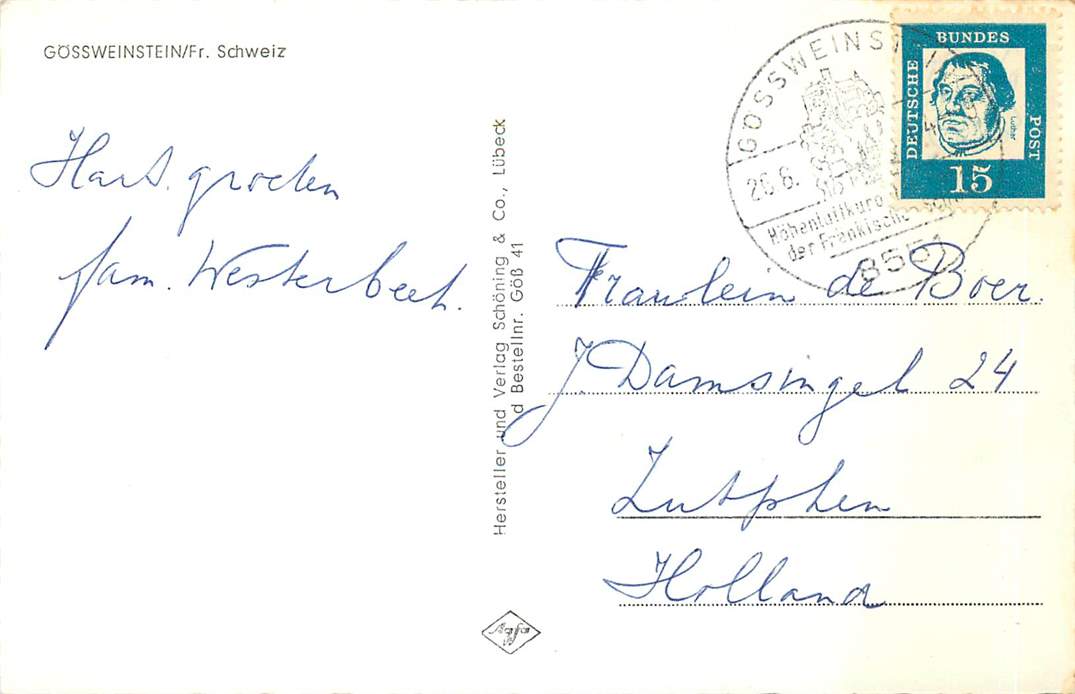 GÖSSWEINSTEIN/Fr. Schweiz
Hart. groeten
fam. Westerbeek.
Hersteller und Verlag Schöning & Co., Lübeck
d Bestellnr. Göß 41
Agfa
GÖSSWEINST
26.6.
4
Höhenluftkuro
der Fränkische
8551
DEUTSCHE
BUNDES
POST
Luther
15
Fraulein de Boer.
J. Damsingel 24
Zutphen
Holland